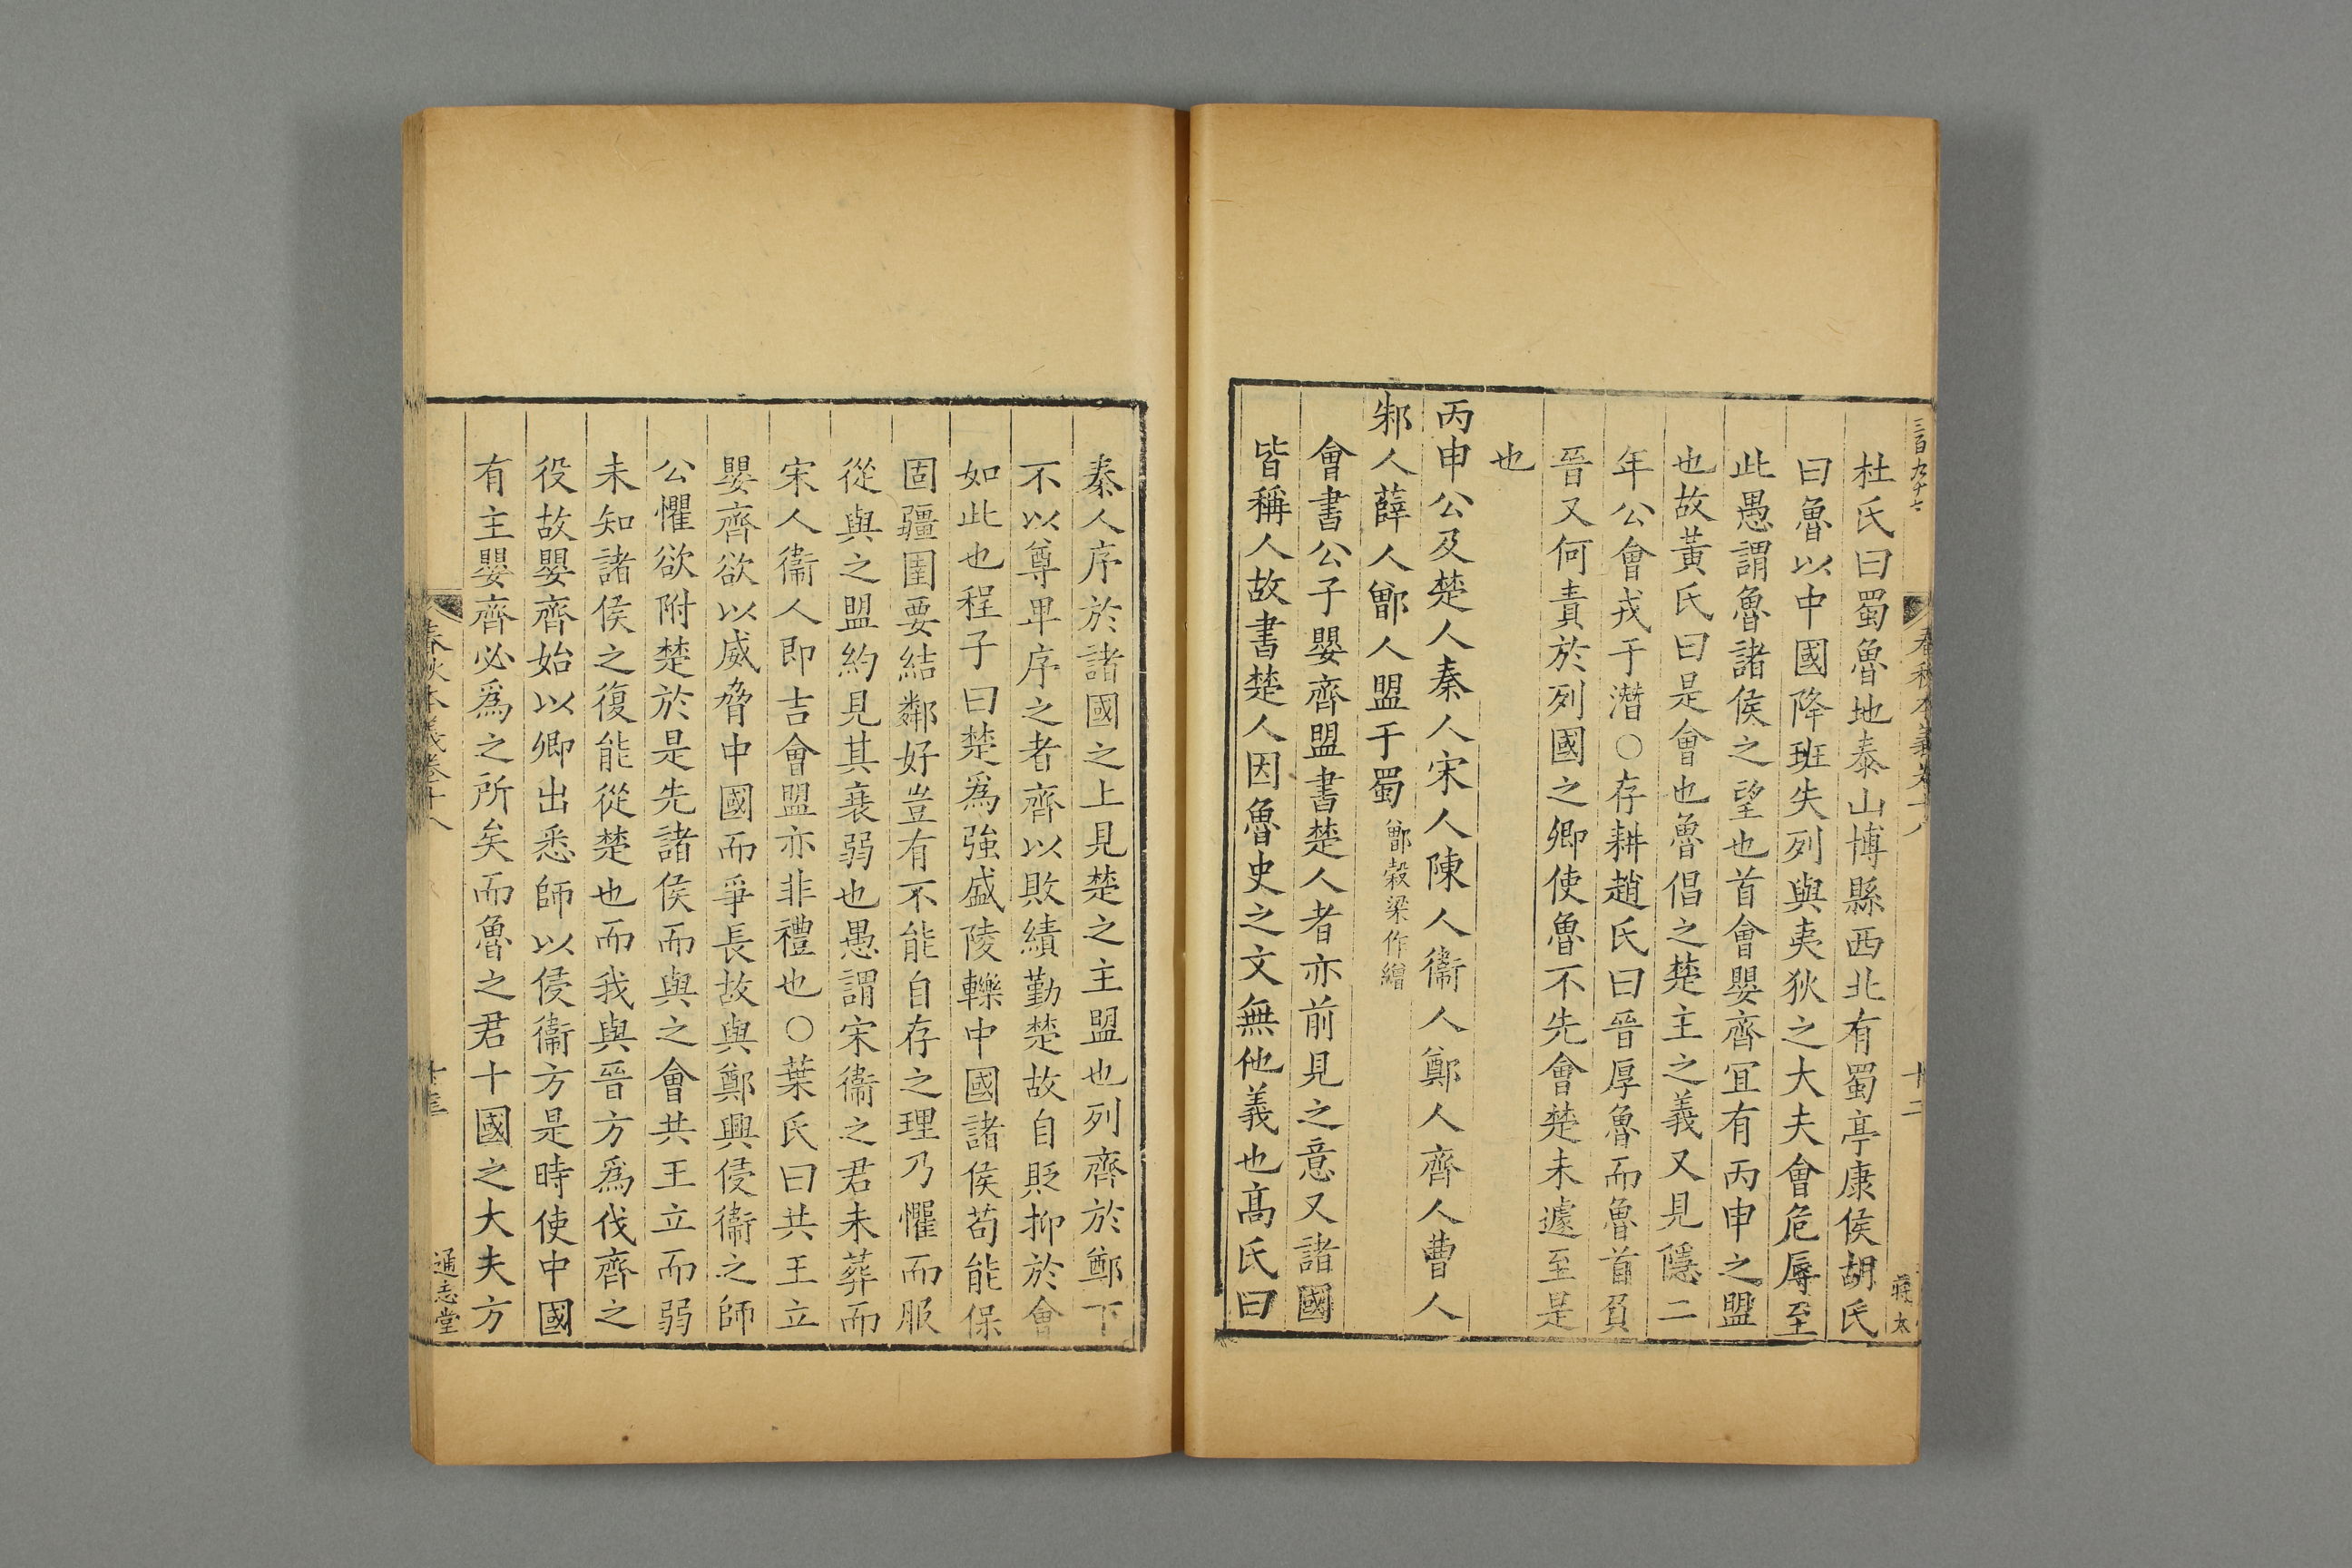 三百九十七
春秋本義卷十八
十二
蔣太
杜氏曰蜀魯地泰山博縣西北有蜀亭康侯胡氏
曰魯以中國降班失列與夷狄之大夫會危辱至
此愚謂魯諸侯之望也首會嬰齊冝有丙申之盟
也故黃氏曰是會也魯倡之楚主之義又見隱二
年公會戎于潛○存耕趙氏曰晉厚魯而魯首負
晉又何責於列國之卿使魯不先會楚未遽至是
也
丙申公及楚人秦人宋人陳人衞人鄭人齊人曹人
邾人薛人鄫人盟于蜀鄫榖梁作繒
會書公子嬰齊盟書楚人者亦前見之意又諸國
皆稱人故書楚人因魯史之文無他義也髙氏曰
秦人序於諸國之上見楚之主盟也列齊於鄭下
不以尊卑序之者齊以敗績勤楚故自貶抑於會
如此也程子曰楚爲強盛陵轢中國諸侯苟能保
固疆圉要結鄰好豈有不能自存之理乃懼而服
從與之盟約見其衰弱也愚謂宋衞之君未葬而
宋人衞人即吉會盟亦非禮也○葉氏曰共王立
嬰齊欲以威脅中國而爭長故與鄭興侵衞之師
公懼欲附楚於是先諸侯而與之會共王立而弱
未知諸侯之復能從楚也而我與晉方爲伐齊之
役故嬰齊始以卿出悉師以侵衞方是時使中國
有主嬰齊必爲之所矣而魯之君十國之大夫方
春秋本義卷十八
十三
通志堂